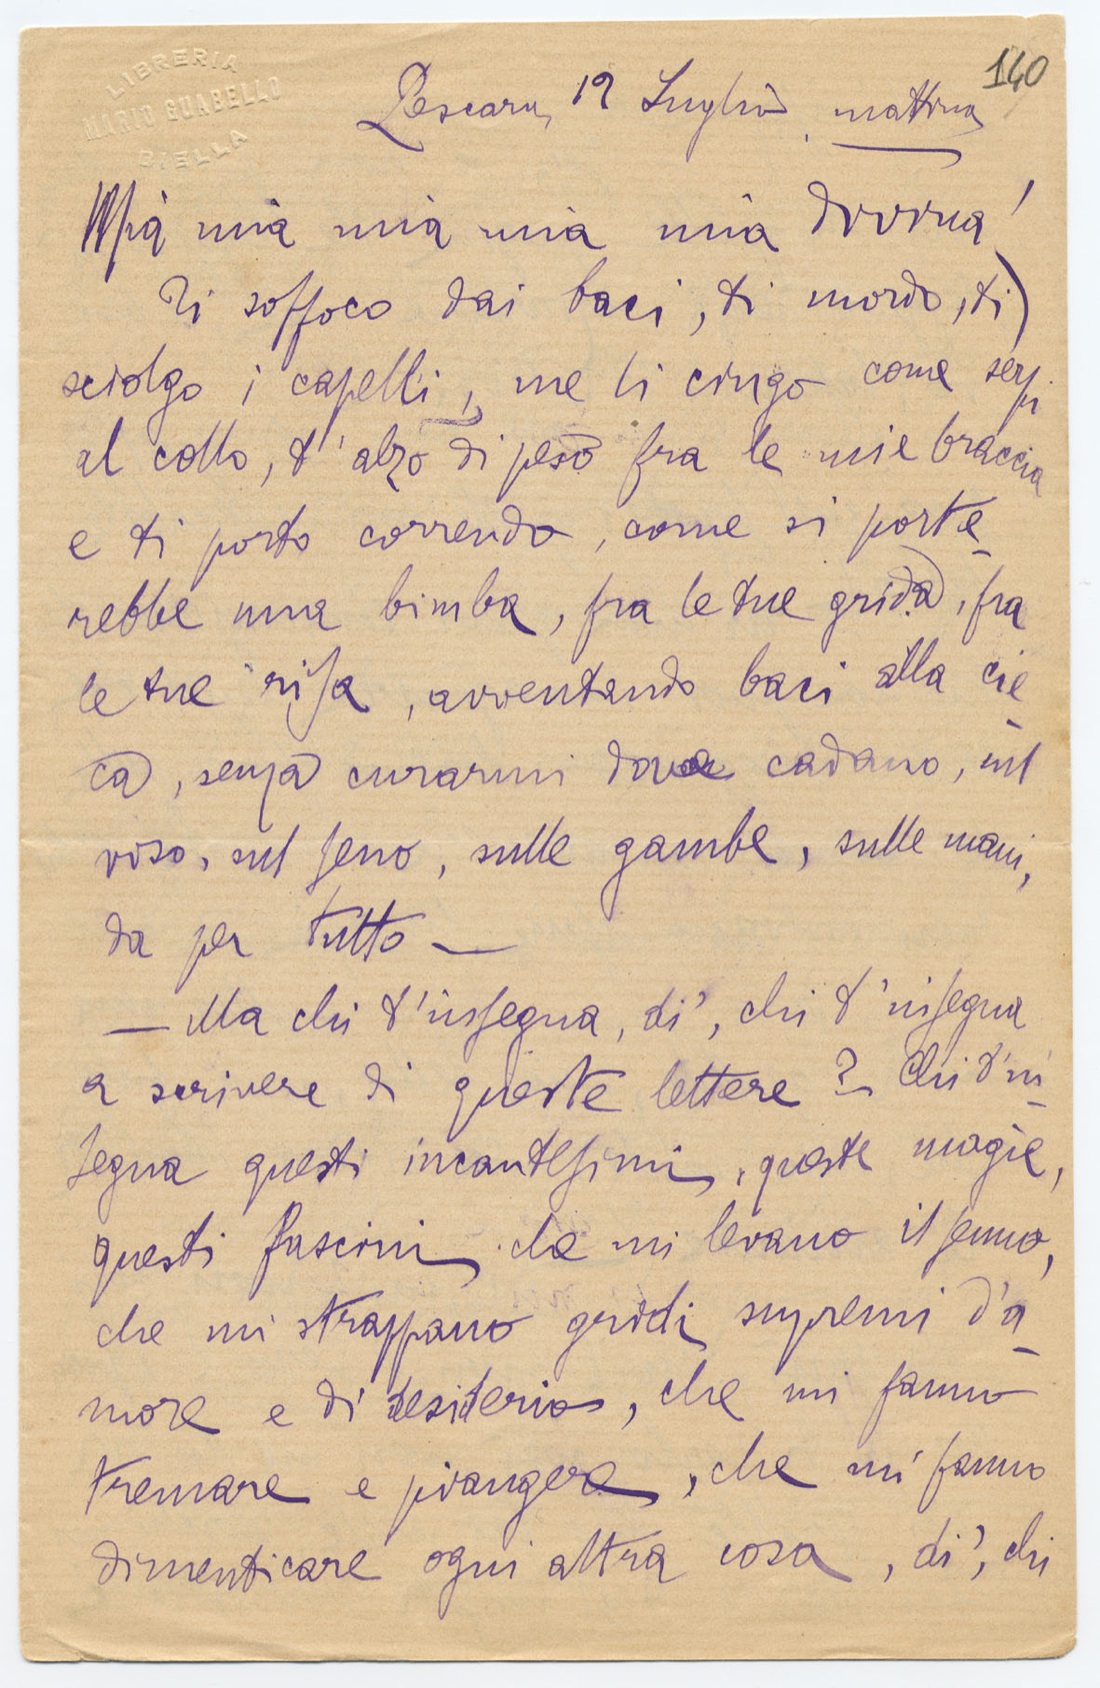 LIBRERIA
MARIO GUABELLO
BIELLA
140
Pescara, 12 Luglio mattina
Mia mia mia mia mia donna!
Ti soffoco dai baci, ti mordo, ti
sciolgo i capelli, me li cingo come serpi
al collo, t'alzo di peso fra le mie braccia
e ti porto correndo, come si porte-
rebbe una bimba, fra le tue grida, fra
le tue risa, avventando baci alla cie-
ca, senza curarmi dove cadano, sul
viso, sul seno, sulle gambe, sulle mani,
da per tutto —
— Ma chi t'insegna, di', chi t'insegna
a scrivere di queste lettere? Chi t'in-
segna questi incantesimi, queste magie,
questi fascini che mi levano il senno,
che mi strappano gridi supremi d'a-
more e di desiderio, che mi fanno
tremare e piangere, che mi fanno
dimenticare ogni altra cosa, di', chi